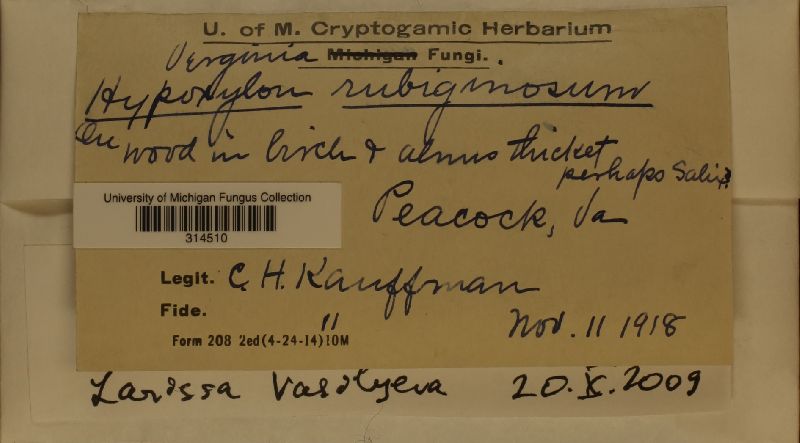 U. of M. Cryptogamic Herbarium
Virginia Michigan Fungi.
Hypoxylon rubiginosum
On wood in birch & alnus thicket
perhaps Salix?
University of Michigan Fungus Collection
314510
Peacock, Va
Legit. C. H. Kauffman
Fide. "
Nov. 11 1918
Form 208 2ed(4-24-14)10M
Larissa Vasilyeva 20.X.2009